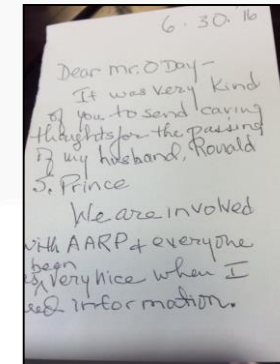 6.30.'16
Dear Mr. O'Day -
It was very kind
of you to send caring
thoughts for the passing
of my husband, Ronald
S. Prince
We are involved
with AARP & everyone
been
very nice when I
information.